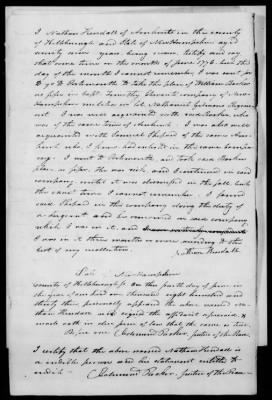 I Nathan Kendall of Amherst in the county
of Hillsborough and State of New Hampshire aged
seventy nine years being sworn testify and say
that some time in the month of June 1778 but the
day of the month I cannot remember, I was sent for
to go to Portsmouth to take the place of William Barker
as fifer in Capt. Timothy Clements company of New
Hampshire militia in Col. Nathaniel Gilmans Regiment
I was well acquainted with said Barker who
was of the same town of Amherst. I was also well
acquainted with Samuel Shepard of the same Am-
herst who, I knew had enlisted in the same compa-
ny. I went to Portsmouth and took said Barkers
place as fifer. He was sick, and I continued in said
company until it was dismissed in the fall but
the exact time I cannot remember. I found
said Shepard in this company doing the duty of
a sergeant and he remained in said company
which I was in it and
I was in it three months or more according to the
best of my recollection. Nathan Kendall
State of New Hampshire
County of Hillsborough ss On this fourth day of June in
the year of our Lord one thousand eight hundred and
thirty three personally appeared the above named Na-
than Kendall and signed the affidavit aforesaid &
made oath in due form of law that the same is true.
Before me Coleman Parker, Justice of the Peace
I certify that the above named Nathan Kendall is
a credible person and his statement entitled to
credit. Coleman Parker Justice of the Peace